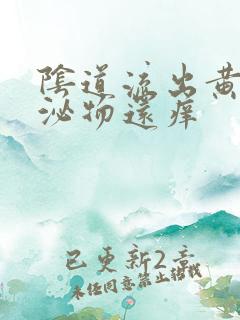 陰道流出黄
泌物還癢
已更新2章
未经同意禁止转载